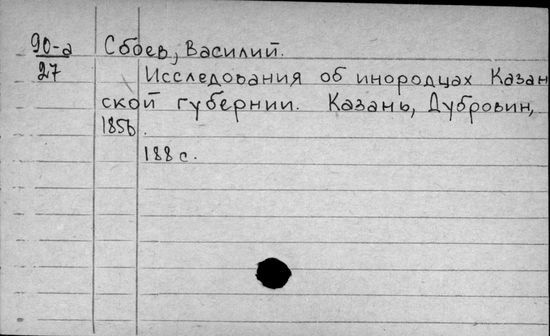 90-а Сбоев, Василий.
27 Исследования об инородцах Казан
ской губернии. Казань, Дубровин,
1856.
188 с.